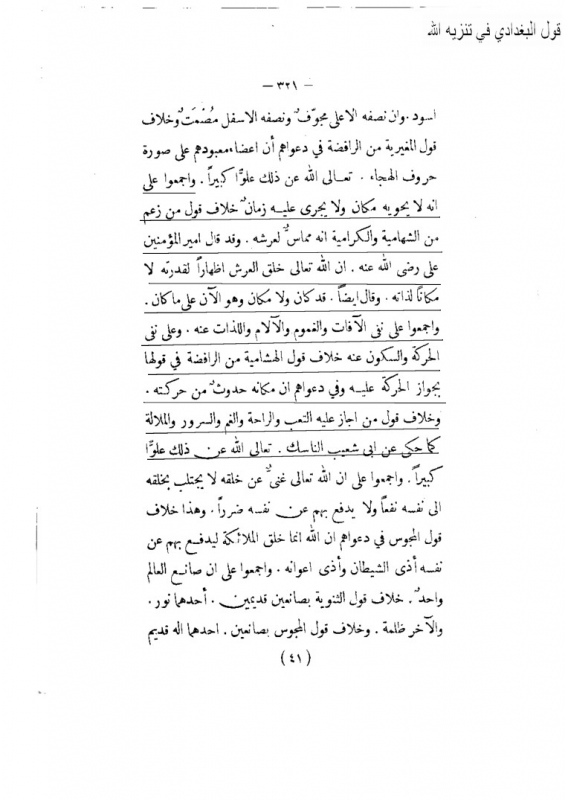 قول البغدادي في تنزيه الله
– ٣٢١ –
اسود . وان نصفه الاعلى مجوّفٌ ونصفه الاسفل مُصْمَتٌ وخلاف
قول المغيرية من الرافضة فى دعواهم أن اعضاء معبودهم على صورة
حروف الهجاء . تعالى الله عن ذلك علوّا كبيراً . واجمعوا على
انه لا يحويه مكان ولا يجرى عليه زمانٌ خلاف قول من زعم
من الشهامية والكرامية انه مماسٌّ لعرشه . وقد قال امير المؤمنين
على رضى الله عنه . ان الله تعالى خلق العرش اظهاراً لقدرته لا
مكاناً لذاته . وقال ايضاً . قد كان ولا مكان وهو الآن على ما كان .
واجمعوا على نفى الآفات والغموم والآلام واللذات عنه . وعلى نفى
الحركة والسكون عنه خلاف قول الهشامية من الرافضة في قولها
بجواز الحركة عليه وفي دعواهم ان مكانه حدوثٌ من حركته .
وخلاف قول من اجاز عليه التعب والراحة والغم والسرور والملالة
كما حكى عن ابى شعيب الناسك . تعالى الله عن ذلك علوًّا
كبيراً . واجمعوا على ان الله تعالى غنىٌّ عن خلقه لا يجتلب بخلقه
الى نفسه نفعاً ولا يدفع بهم عن نفسه ضرراً . وهذا خلاف
قول المجوس فى دعواهم ان الله انما خلق الملائكة ليدفع بهم عن
نفسه أذى الشيطان وأذى اعوانه . واجمعوا على ان صانع العالم
واحدٌ . خلاف قول الثنوية بصانعين قديمين . أحدهما نور .
والآخر ظلمة . وخلاف قول المجوس بصانعين . احدهما اله قديم
(٤١)